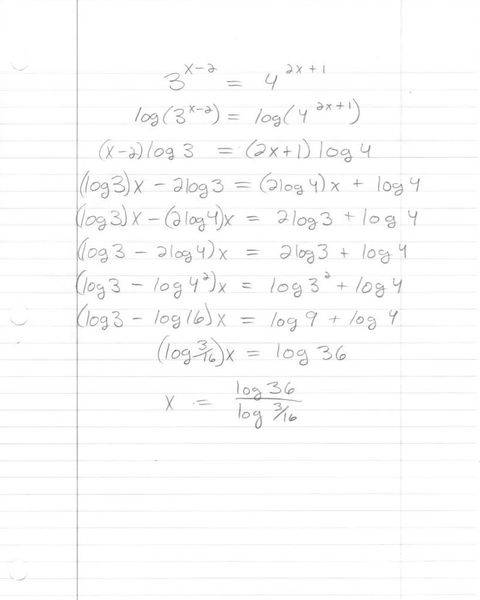 3^(x-2) = 4^(2x+1)
log(3^(x-2)) = log(4^(2x+1))
(x-2)log 3 = (2x+1) log 4
(log3)x - 2log3 = (2log4)x + log 4
(log3)x - (2log4)x = 2log3 + log 4
(log3 - 2log4)x = 2log3 + log 4
(log3 - log4²)x = log3² + log 4
(log3 - log16)x = log 9 + log 4
(log 3/16)x = log 36
x = log36 / log 3/16